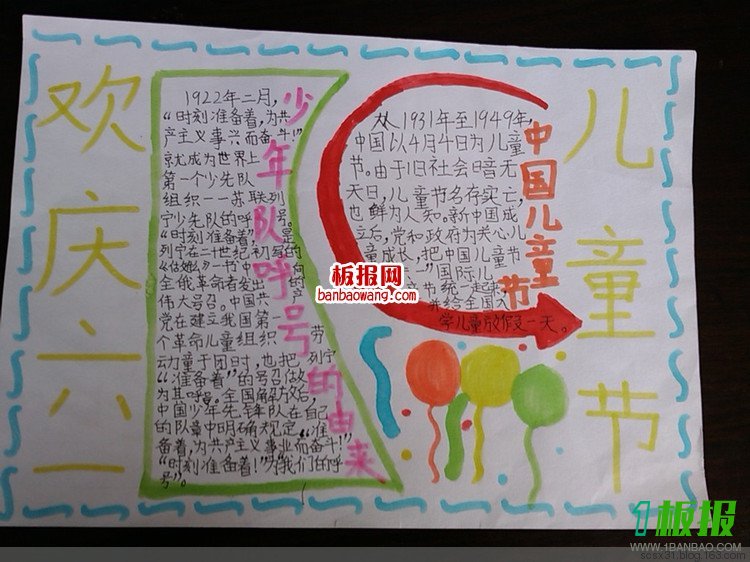 欢庆六一
少年队呼号的由来
1922年二月，
“时刻准备着，为共
产主义事兴而奋斗！”
就成为世界上
第一个少先队
组织——苏联列
宁少先队的呼号。
“时刻准备着”，是
列宁在二十世纪初写的
《怎么办》一书中
全俄革命者发出的
伟大号召。中国共
党在建立我国第一
个革命儿童组织 劳
动童子团时，也把列宁
“准备着”的号召做
为其呼号。全国解放后，
中国少年先锋队在自己
的队章中明确规定“准
备着，为共产主义事业而奋斗！”
“时刻准备着！”为我们的呼
号”。
中国儿童节
从1931年至1949年，
中国以4月4日为儿童
节。由于旧社会暗无
天日，儿童节名存实亡，
也鲜为人知。新中国成
立后，党和政府为关心儿
童成长，把中国儿童节
“国际儿
节统一起来
并给全国
学儿童放假一天。
儿童节
板报网
banbaowang.com
1板报
WWW.1BANBAO.COM
scsx31.blog.163.com